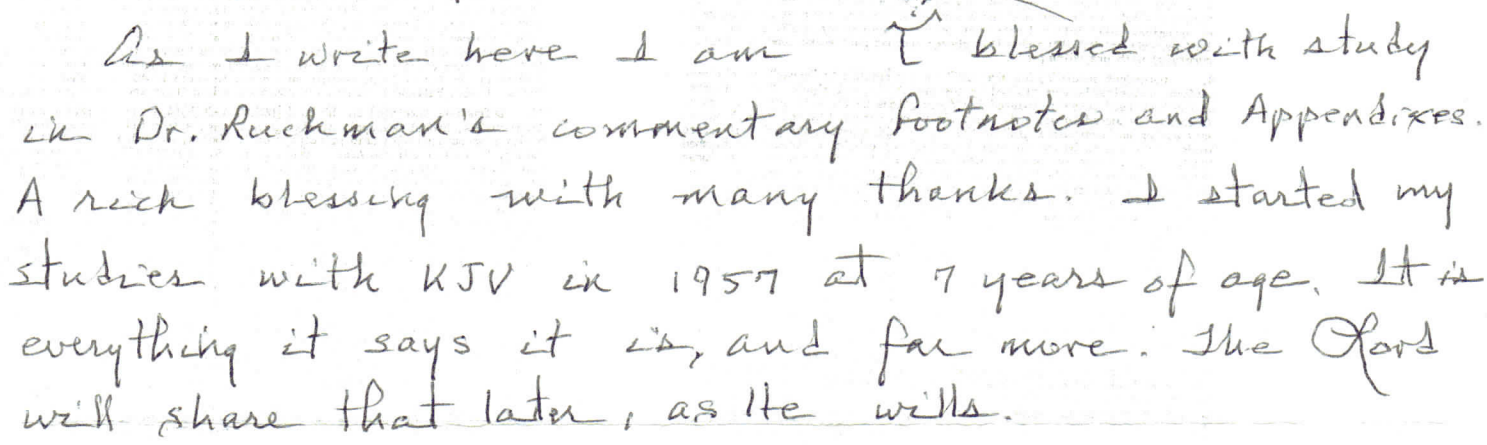 As I write here I am blessed with study
in Dr. Ruckman's commentary footnotes and Appendixes.
A rich blessing with many thanks. I started my
studies with KJV in 1957 at 7 years of age. It is
everything it says it is, and far more. The Lord
will share that later, as He wills.